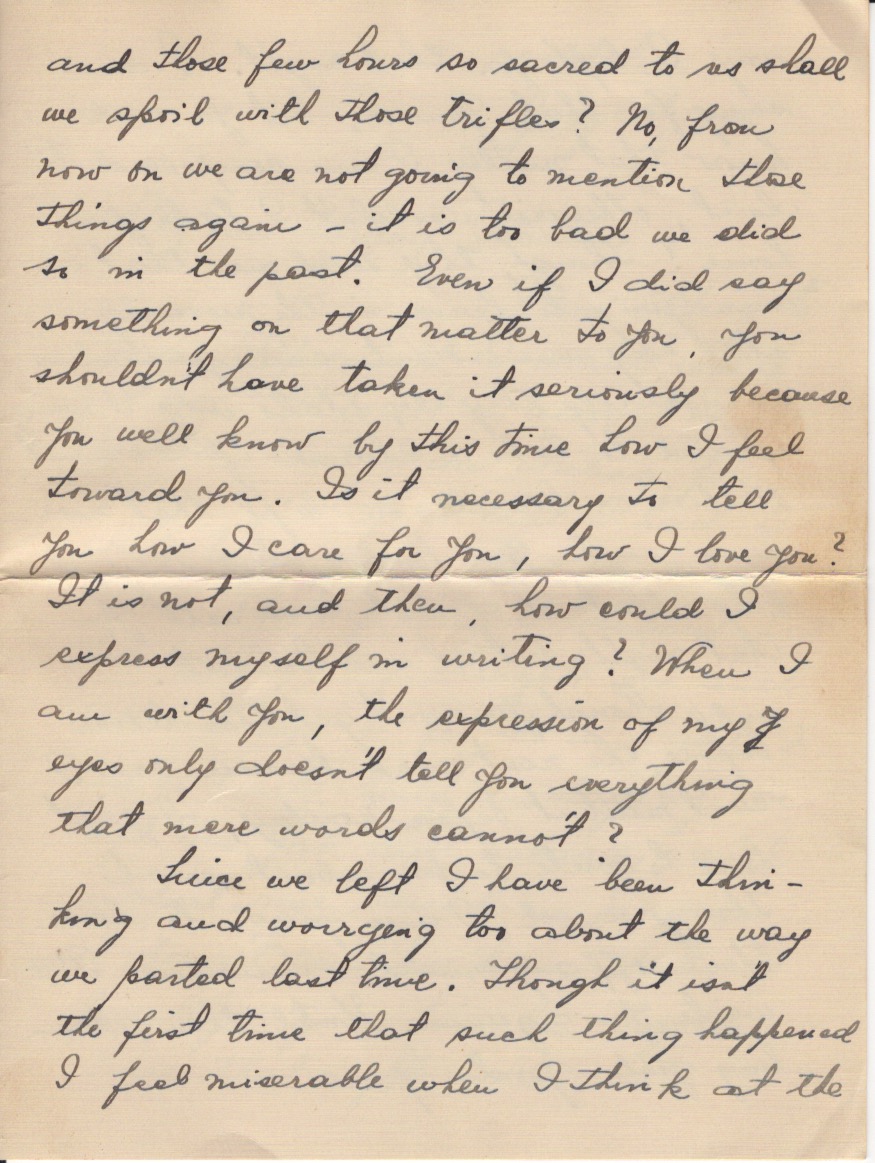 and those few hours so sacred to us shall
we spoil with those trifles? No, from
now on we are not going to mention those
things again - it is too bad we did
so in the past. Even if I did say
something on that matter to you, you
shouldn't have taken it seriously because
you well know by this time how I feel
toward you. Is it necessary to tell
you how I care for you, how I love you?
It is not, and then, how could I
express myself in writing? When I
am with you, the expression of my
eyes only doesn't tell you everything
that mere words cannot?
Since we left I have been thin-
king and worrying too about the way
we parted last time. Though it isn't
the first time that such thing happened
I feel miserable when I think at the